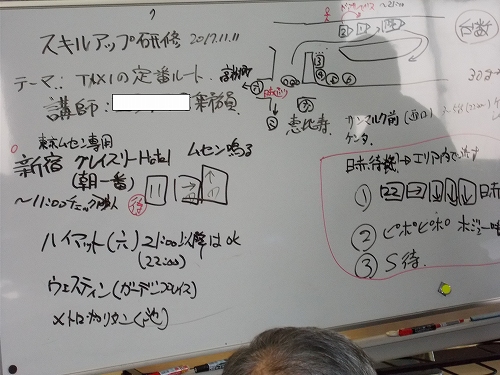 スキルアップ研修 2017.11.11
テーマ: TAXIの定番ルート.
講師:
乗務員
東京ムセン専用
新宿 グレイスリーHotel ムセン鳴る
(朝一番)
~11:00チェック
待
ハイアット(六) 21:00以降はOK
(22:00)
ウェスティン(ガーデンプレイス)
メトロポリタン(池)
台数
恵比寿
サンマルク前(西口)
ケンタ.
日赤待機→エリア内で流す
① 22 → ↓ ↓ ↓ 日赤
② ピポピポ
③ S待.